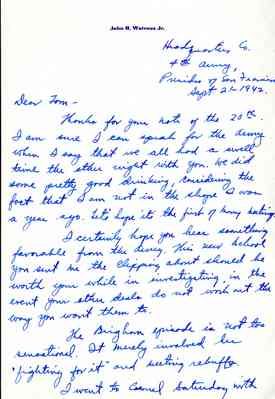 John H. Watrous Jr.
Headquarters Co.
4th Army,
Presidio of San Francisco
Sept 21 - 1942.
Dear Tom -
Thanks for your note of the 20th.
I am sure I can speak for the army
when I say that we all had a swell
time the other night with you. We did
some pretty good drinking, considering the
fact that I am not in the shape I was
a year ago. Let's hope it's the first of many
I certainly hope you hear something
favorable from the Navy. This new school
you sent me the clipping about should be
worth your while in investigating, in the
event your other deals do not work out the
way you want them to.
The Brigham episode is not too
sensational. It merely involved his
"fighting for it" and meeting rebuffs
I went to Carmel Saturday with